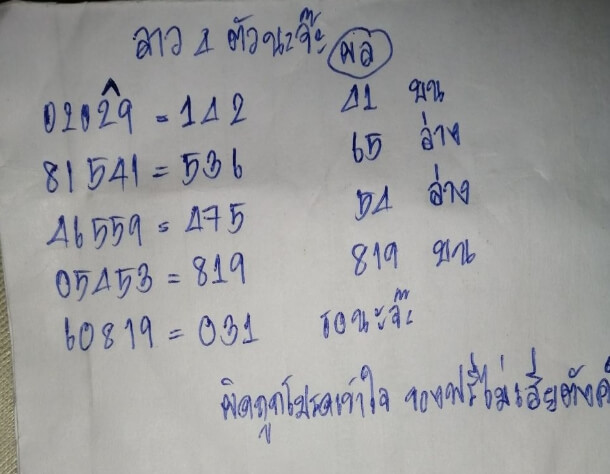 ลาว 4 ตัวนะจ๊ะ ผล
02029 = 142 41 บน
81541 = 536 65 ล่าง
46559 = 475 54 ล่าง
05453 = 819 819 บน
60819 = 031 รอนะจ๊ะ
ผิดถูกโปรดเข้าใจ ของฟรีไม่เสียตังค์